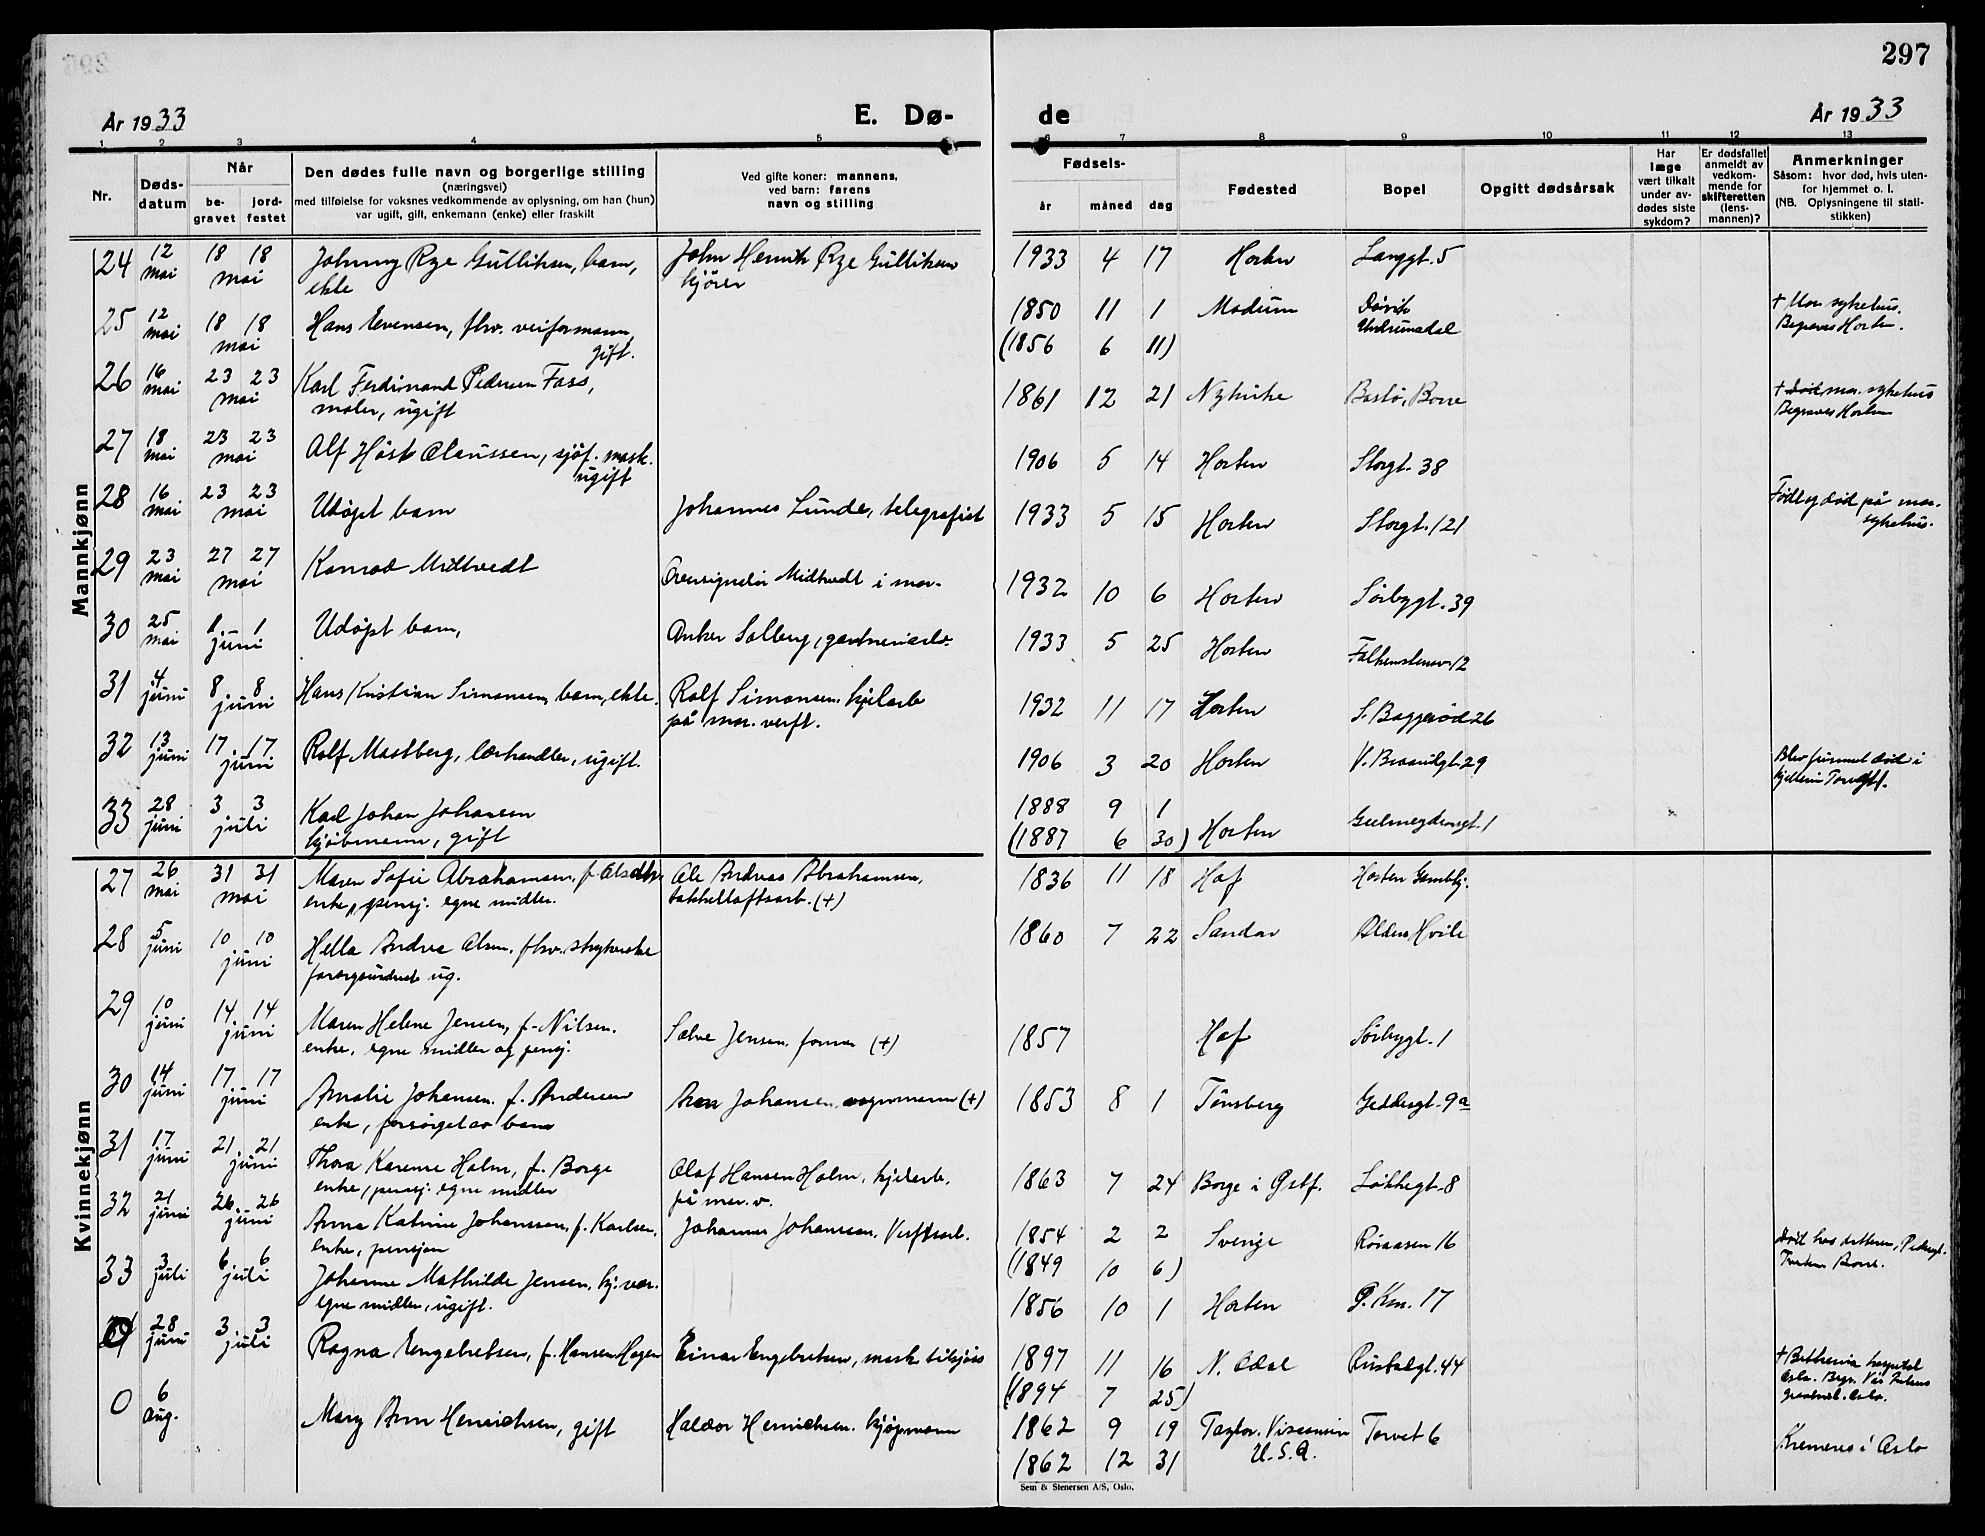 297
År 1933 E. Dø- de År 1933
1 2 3 4 5 6 7 8 9 10 11 12 13
Nr.
Døds-
datum
Når
be-
gravet
jord-
festet
Den dødes fulle navn og borgerlige stilling
(næringsvei)
med tilføielse for voksnes vedkommende av oplysning, om han (hun)
var ugift, gift, enkemann (enke) eller fraskilt
Ved gifte koner: mannens,
ved barn: farens
navn og stilling
Fødsels-
år måned dag
Fødested
Bopel
Opgitt dødsårsak
Har
læge
vært tilkalt
under av-
dødes siste
sykdom?
Er dødsfallet
anmeldt av
vedkom-
mende for
skifteretten
(lens-
mannen)?
Anmerkninger
Såsom: hvor død, hvis uten-
for hjemmet o. l.
(NB. Oplysningene til stati-
stikken)
Mannkjønn
24 12 mai 18 18 mai Johnny Rye Gulliksen, barn, ekte John Henrik Rye Gulliksen kjører 1933 4 17 Horten Langgt. 5
25 12 mai 18 18 mai Hans Evensen, fhv. veiformann, gift. 1850 11 1 Modum Undrumsdal † Mar. sykehus. Begraves Horten.
(1856 6 11)
26 16 mai 23 23 mai Karl Ferdinand Pedersen Foss, maler, ugift 1861 12 21 Nykirke Bastø, Borre † død mar. sykehus Begraves Horten
27 18 mai 23 23 mai Alf Høst Claussen, sjøf. mask. ugift 1906 5 14 Horten Storgt. 38
28 16 mai 23 23 mai Udøpt barn Johannes Lunde, telegrafist 1933 5 15 Horten Storgt. 121 Født og død på mar. sykehus.
29 23 mai 27 27 mai Konrad Midtvedt Midtvedt i mar. 1932 10 6 Horten Sørbygt. 39
30 25 mai 1 1 juni Udøpt barn, Anker Solberg, gartneriarb. 1933 5 25 Horten Falkenstensv. 12
31 4 juni 8 8 juni Hans Kristian Simonsen, barn, ekte. Rolf Simonsen, kjelarb på mar. verft. 1932 11 17 Horten S. Baggerød 26
32 13 juni 17 17 juni Rolf Mastberg, lærhandler, ugift. 1906 3 20 Horten V. Brårudgt. 29 Blev funnet død i
33 28 juni 3 3 juli Karl Johan Johansen kjøbmann, gift 1888 9 1 Horten
(1887 6 30)
Kvinnekjønn
27 26 mai 31 31 mai Maren Sofie Abrahamsen, f. enke, pensj. egne midler. Ole Andreas Abrahamsen, takkelloftsarb. (+) 1836 11 18 Hof Horten Gamlehj.
28 5 juni 10 10 juni Hella Andrea Olsen, fhv. strykerske ug. 1860 7 22 Sandar Alders Hvile
29 10 juni 14 14 juni Maren Helene Jensen, f. Nilsen. enke, egne midler og pensj. Salve Jensen, former (+) 1857 Hof Sørbygt. 1
30 14 juni 17 17 juni Amalie Johansen, f. Andersen enke, forsørget av barn Johansen, vognmann (+) 1853 8 1 Tønsberg Geddesgt. 9a
31 17 juni 21 21 juni Thora Karene Holm, f. Borge enke, pensj. egne midler Olaf Hansen Holm, kjelarb. på mar. v. 1863 7 24 Borge i Østf. Løkkegt. 8
32 21 juni 26 26 juni Anna Katrine Johanssen, f. Karlsen, enke, pensjon Johannes Johanssen, Verftsarb. 1854 2 2 Sverige Røraasen 16 Død hos datteren, Borre.
(1849 10 6)
33 3 juli 6 6 juli Johanne Mathilde Jensen, egne midler, ugift. 1856 10 1 Horten P. Km. 17
0 28 juni 3 3 juli Ragna Engebretsen, f. Hansen Hagen Einar Engebretsen, mask. 1897 11 16 N. Odal Rustadgt. 44 † Bethania hospital Oslo. Begr. Vår Frelsers gravlund. Oslo.
(1894 7 25)
0 6 aug. Mary Ann Henrichsen, gift Haldor Henrichsen, kjøpmann 1862 9 19 U.S.A. Torvet 6 Kremeres i Oslo
1862 12 31
Sem & Stenersen A/S, Oslo.